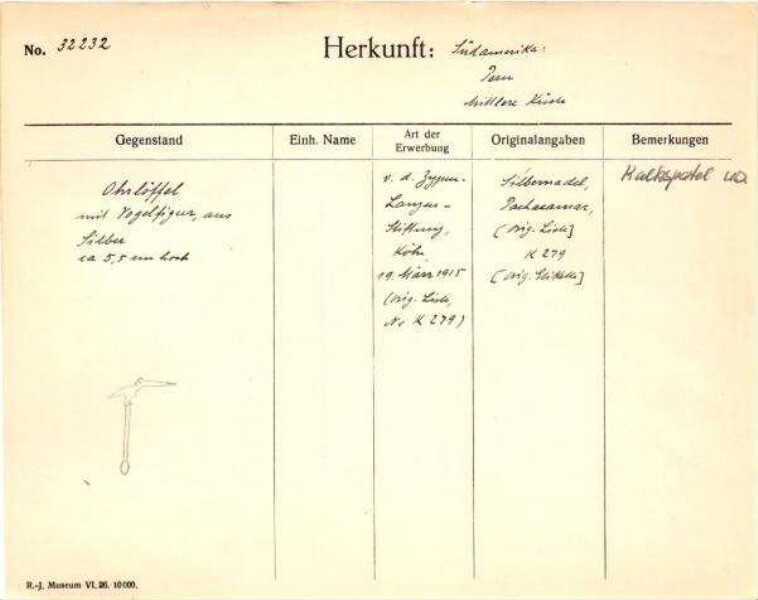 No. 32232
Herkunft: Südamerika:
Peru
Mittlere Küste
Gegenstand
Einh. Name
Art der Erwerbung
Originalangaben
Bemerkungen
Ohrlöffel
mit Vogelfigur, aus
Silber
ca 5,5 cm hoch
v. d. Zypen-
Langen-
Stiftung,
Köln,
19. März 1915
(orig. Liste,
No K 279)
Silbernadel,
Pachacamac,
[orig. Liste]
K 279
[orig. Etikette]
Kalkspatel
R.-J. Museum VI. 26. 10000.